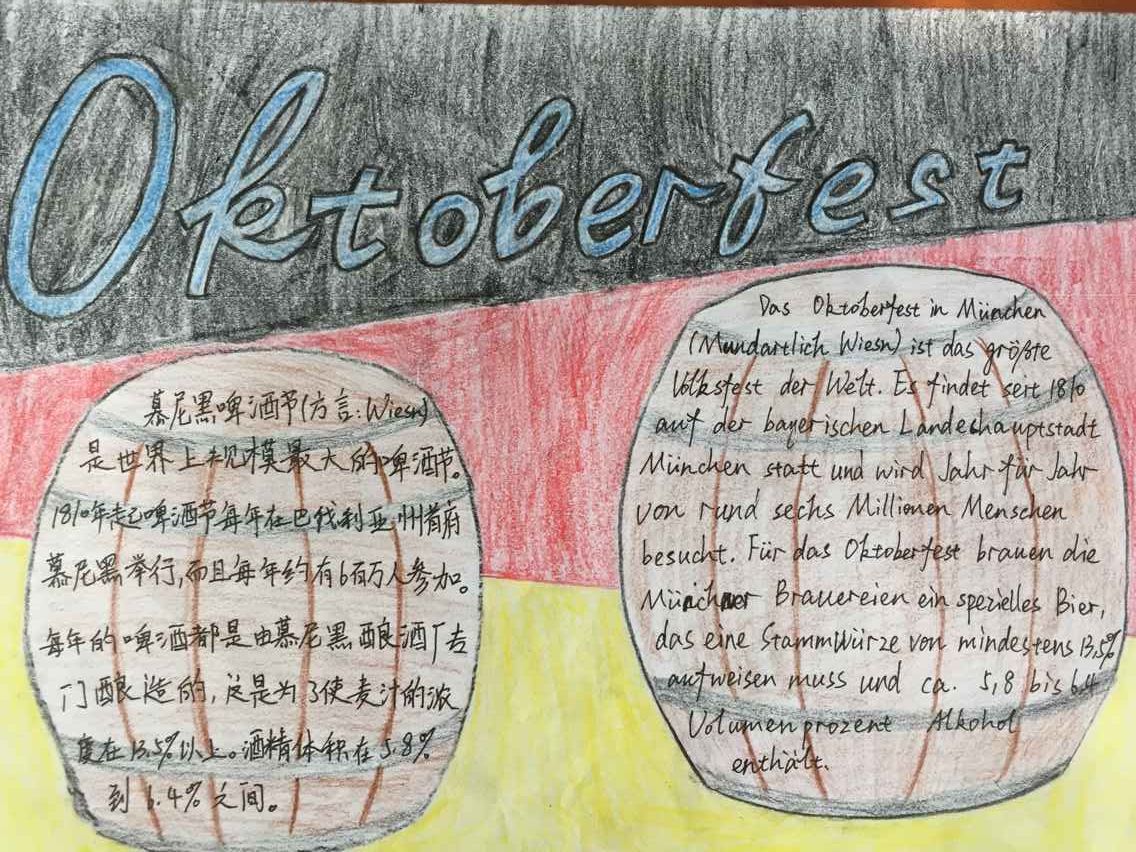 Oktoberfest
慕尼黑啤酒节(方言:Wiesn)
是世界上规模最大的啤酒节。
1810年起啤酒节每年在巴伐利亚州首府
慕尼黑举行,而且每年约有6百万人参加。
每年的啤酒都是由慕尼黑酿酒厂专
门酿造的,这是为了使麦汁的浓
度在13.5%以上。酒精体积在5.8%
到6.4%之间。
Das Oktoberfest in München
(Mundartlich Wiesn) ist das größte
Volksfest der Welt. Es findet seit 1810
auf der bayerischen Landeshauptstadt
München statt und wird Jahr für Jahr
von rund sechs Millionen Menschen
besucht. Für das Oktoberfest brauen die
Münchner Brauereien ein spezielles Bier,
das eine Stammwürze von mindestens 13,5%
aufweisen muss und ca. 5,8 bis 6,4
Volumenprozent Alkohol
enthält.